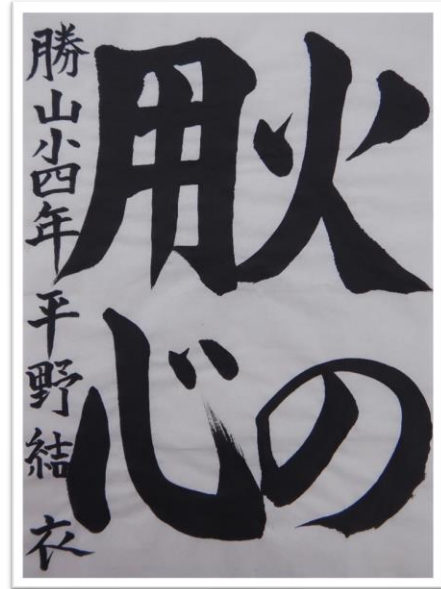 火の
用心
勝山小四年平野結衣